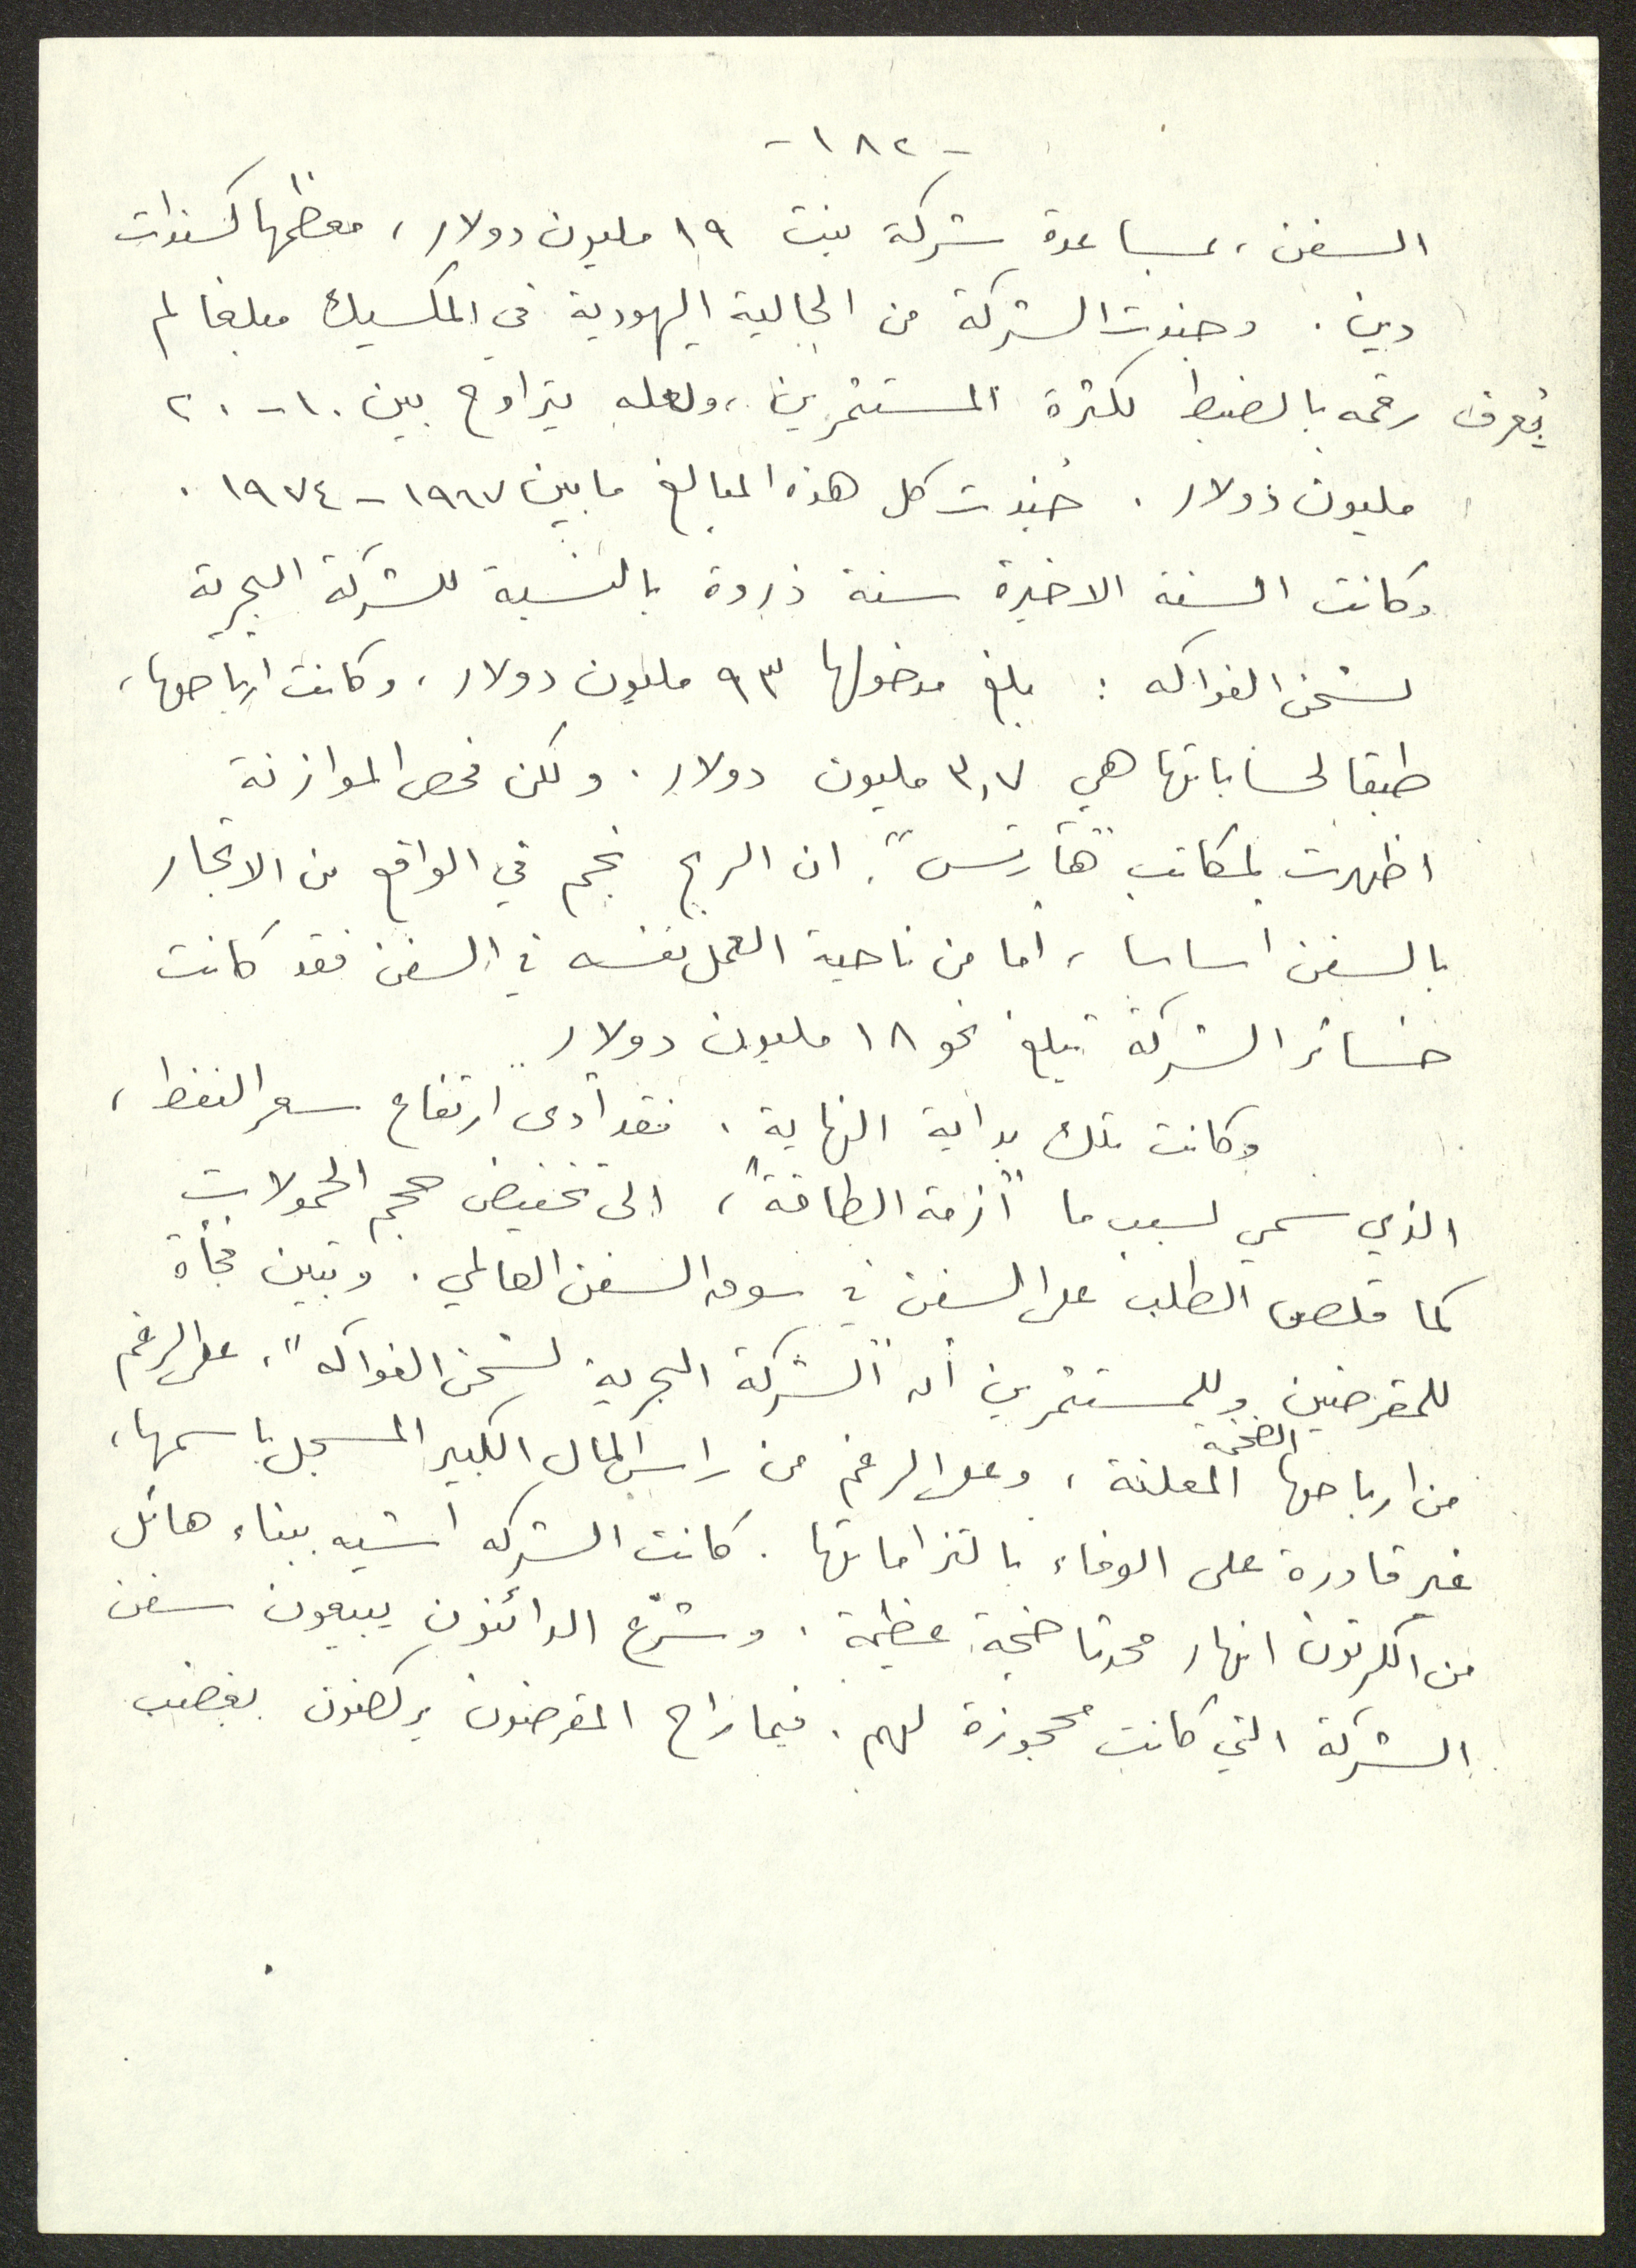 -١٨٢-
السفن، بمساعدة شركة بنت ١٩ مليون دولار، معظمها كسندات
دين. وجندت الشركة من الجالية اليهودية في المكسيك مبلغا لم
يُعرف رقمه بالضبط لكثرة المستثمرين، ولعله يتراوح بين ١٠-٢٠
مليون دولار. جُندت كل هذه المبالغ ما بين ١٩٦٧-١٩٧٤.
وكانت السنة الاخيرة سنة ذروة بالنسبة للشركة البحرية
لشحن الفواكه: بلغ مدخولها ٩٣ مليون دولار، وكانت ارباحها،
طبقا لحساباتها هي ٣,٧ مليون دولار. ولكن فحص الموازنة
اظهرت لمكاتب "هآرتس". ان الربح نجم في الواقع من الاتجار
بالسفن اساسا، اما من ناحية العمل نفسه في السفن فقد كانت
خسائر الشركة تبلغ نحو ١٨ مليون دولار..
وكانت تلك بداية النهاية. فقد أدى ارتفاع سعر النفط،
الذي سمي لسبب ما "أزمة الطاقة"، الى تخفيض حجم الحمولات
كما تقلص الطلب على السفن في سوق السفن العالمي. وتبين فجأة
للمقرضين وللمستثمرين أن "الشركة البحرية لشحن الفواكه"، على الرغم
من ارباحها الضخمة المعلنة، وعلى الرغم من راس المال الكبير المسجل باسمها،
غير قادرة على الوفاء بالتزاماتها. كانت الشركه اشبه ببناء هائل
من الكرتون انهار محدثا ضجة عظيمة. وشرع الدائنون يبيعون سفن
الشركة التي كانت محجوزة لهم. فيما راح المقرضون يركضون بغضب